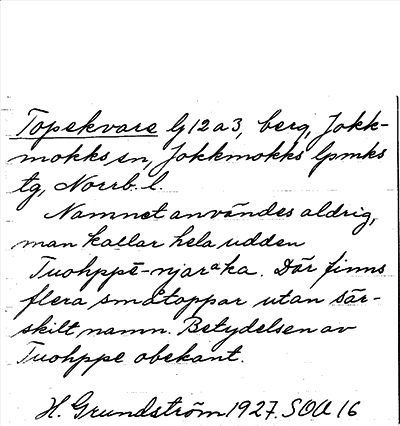 Topekvare G12a3, berg, Jokk-
mokks sn, Jokkmokks lpmks
tg, Norrb. l.
Namnet användes aldrig,
man kallar hela udden
Tuohppē-njarᵃka. Där finns
flera småtoppar utan sär-
skilt namn. Betydelsen av
Tuohppe obekant.
H. Grundström 1927. SOA 16